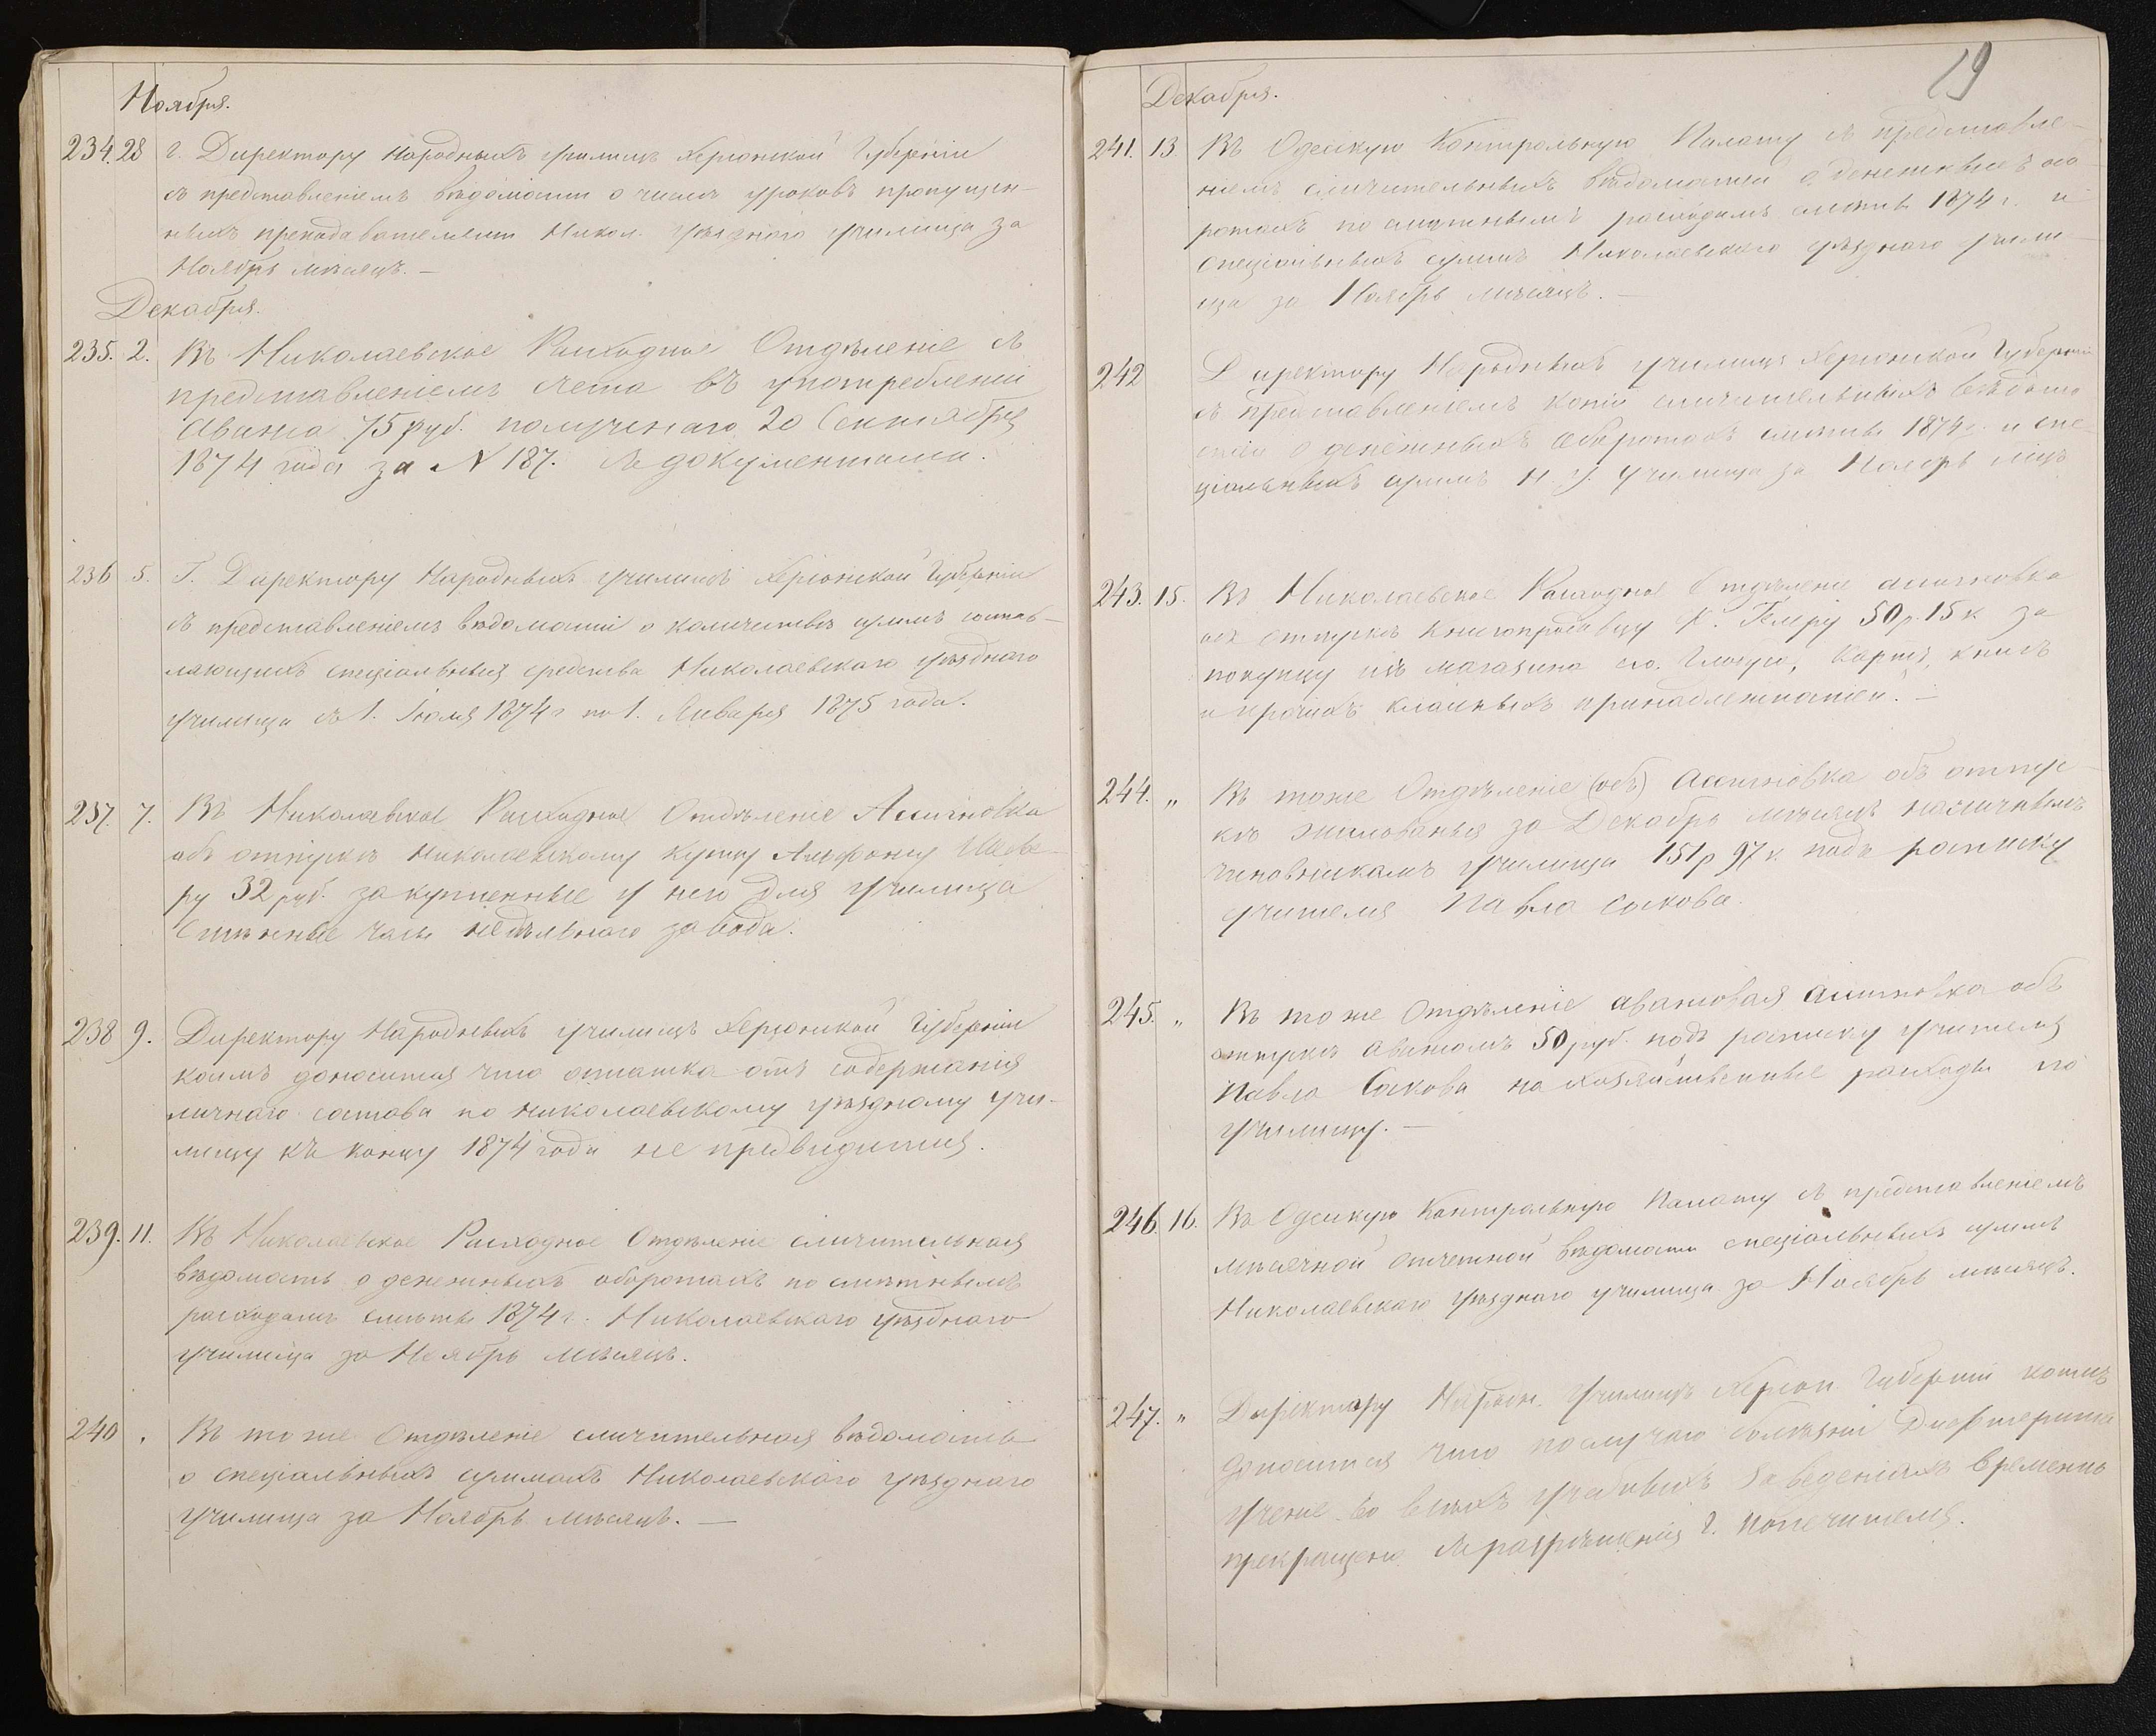 Ноября.
234. 28 г. Директору народныхъ училищъ Херсонской Губерніи
съ представленіемъ вѣдомости о числѣ уроковъ пропущен-
ныхъ преподавателями Никол. Уѣзднаго училища за
Ноябрь мѣсяцъ. —
Декабря.
235. 2. Въ Николаевское Расходное Отдѣленіе съ
представленіемъ счета въ употребленіи
аванса 75 руб. полученаго 20 Сентября
1874 года за N 187. съ документами.
236 5. Г. Директору Народныхъ училищъ Херсонской Губерніи
съ представленіемъ вѣдомости о количествѣ суммъ состав-
ляющихъ спеціальныя средства Николаевскаго уѣзднаго
училища съ 1. Іюля 1874 г по 1. Января 1875 года.
237. 7. Въ Николаевское Расходное Отдѣленіе Ассигновка
объ отпускѣ Николаевскому купцу
ру 32 руб. за купленные у него для училища
Стѣнные часы недѣльнаго завода.
238 9. Директору Народныхъ училищъ Херсонской Губерніи
коимъ доноситься что остатка отъ содержанія
личнаго состава по Николаевскому уѣздному учи-
лищу къ концу 1874 года не предвидится.
239. 11. Въ Николаевское Расходное Отдѣленіе сличительная
вѣдомость о денежныхъ оборотахъ по смѣтнымъ
расходамъ смѣты 1874 г. Николаевскаго уѣзднаго
училища за Ноябрь мѣсяцъ.
240 . Въ тоже Отдѣленіе сличительная вѣдомость
о спеціальныхъ суммахъ Николаевскаго уѣзднаго
училища за Ноябрь мѣсяцъ. —
19
Декабря.
241. 13. Въ Одесскую Контрольную Палату съ представле-
ніемъ сличительныхъ вѣдомостей о денежныхъ обо-
ротахъ по смѣтнымъ расходамъ смѣты 1874 г. и
спеціальныхъ суммъ Николаевскаго уѣзднаго учили-
ща за Ноябрь мѣсяцъ. —
242 Директору Народныхъ училищъ Херсонской Губерніи
съ представленіемъ копій сличительныхъ вѣдомо
стей о денежныхъ оборотахъ смѣты 1874 г. и спе-
ціальныхъ суммъ Н. У. Училища за Ноябрь мцъ
243. 15. Въ Николаевское Расходное Отдѣленіе ассигновка
объ отпускѣ книгопродавцу 50 р. 15 к за
покупку изъ магазина его. Глобуса, картъ, книгъ
и прочихъ классныхъ принадлежностей. —
244. „ Въ тоже Отдѣленіе (объ) Ассигновка объ отпус-
кѣ жалованья за Декабрь мѣсяцъ наличнымъ
чиновникамъ училища 151 р 97 к подъ росписку
учителя Павла Сокова.
245. „ Въ тоже Отдѣленіе авансовая ассигновка объ
отпускѣ авансомъ 50 руб. подъ росписку учителя
Павла Сокова на хозяйственные расходы по
училищу. —
246. 16. Въ Одесскую Контрольную Палату съ представленіемъ
мѣсячной отчетной вѣдомости спеціальныхъ суммъ
Николаевскаго уѣзднаго училища за Ноябрь мѣсяцъ.
247. „ Директору Народн. Училищъ Херсон. Губерніи коимъ
доносится что по случаю болѣзни Дифтерита
ученіе во всѣхъ учебныхъ заведеніяхъ временно
прекращено съ разрѣшенія Г. Попечителя.